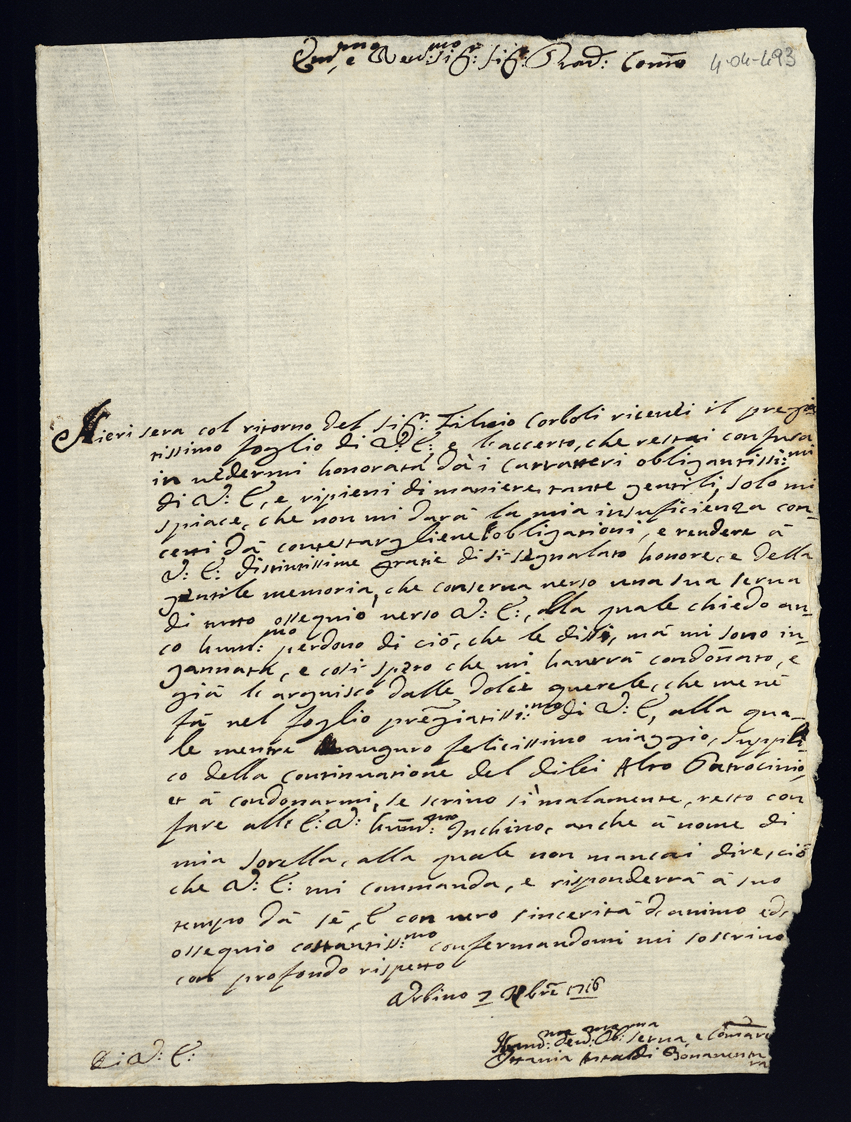 Em.mo e Rev.mo Sig: Sig: Prod: Comō 4-04-493
Hieri sera col ritorno del Sig.r Filuio Corboli riceuei il pregia
tissimo foglio di V: E: e l'accerto, che restai confusa
in uedermi honorata dà i Carratteri obligantissi:mi
di V: E, e ripieni di maniere tante gentili, solo mi
spiace, che non mi darà la mia insuficienza con-
cetti dà contestargliene l'obligationi, e rendere à
V: E: distintissime gratie di sì segnalato honore, e della
gentile memoria, che conserua uerso una sua serua
di tutto ossequio uerso V: E:, alla quale chiedo an-
co hum:mo perdono di ciò, che le dissi, mà mi sono in-
gannata, e così spero che mi hauerà condōnato, e
già l'arguisco dalle dolcie querele, che me nè
fà nel foglio pregiatissi:mo di V: E, alla qua-
le mentre auguro felicissimo uiaggio, suppli-
co della continuatione del dilei Alto Patrocinio,
et à condonarmi, se scriuo sì malamente, resto con
fare all' E: V: hum.mo Inchino, anche à nome di
mia sorella, alla quale non mancai dire, ciò
che V: E: mi commanda, e risponderrà à suo
tempo dà sè, E con uero sincerità d'animo ed
ossequio costantiss:mo confermandomi mi soscriuo
con profondo rispetto
Vrbino 7 Nbre 1716
Di V: E:
Hum:ma Deu:ma Ob:ma Serua, e Comare
Staldi Bonauentu
ra